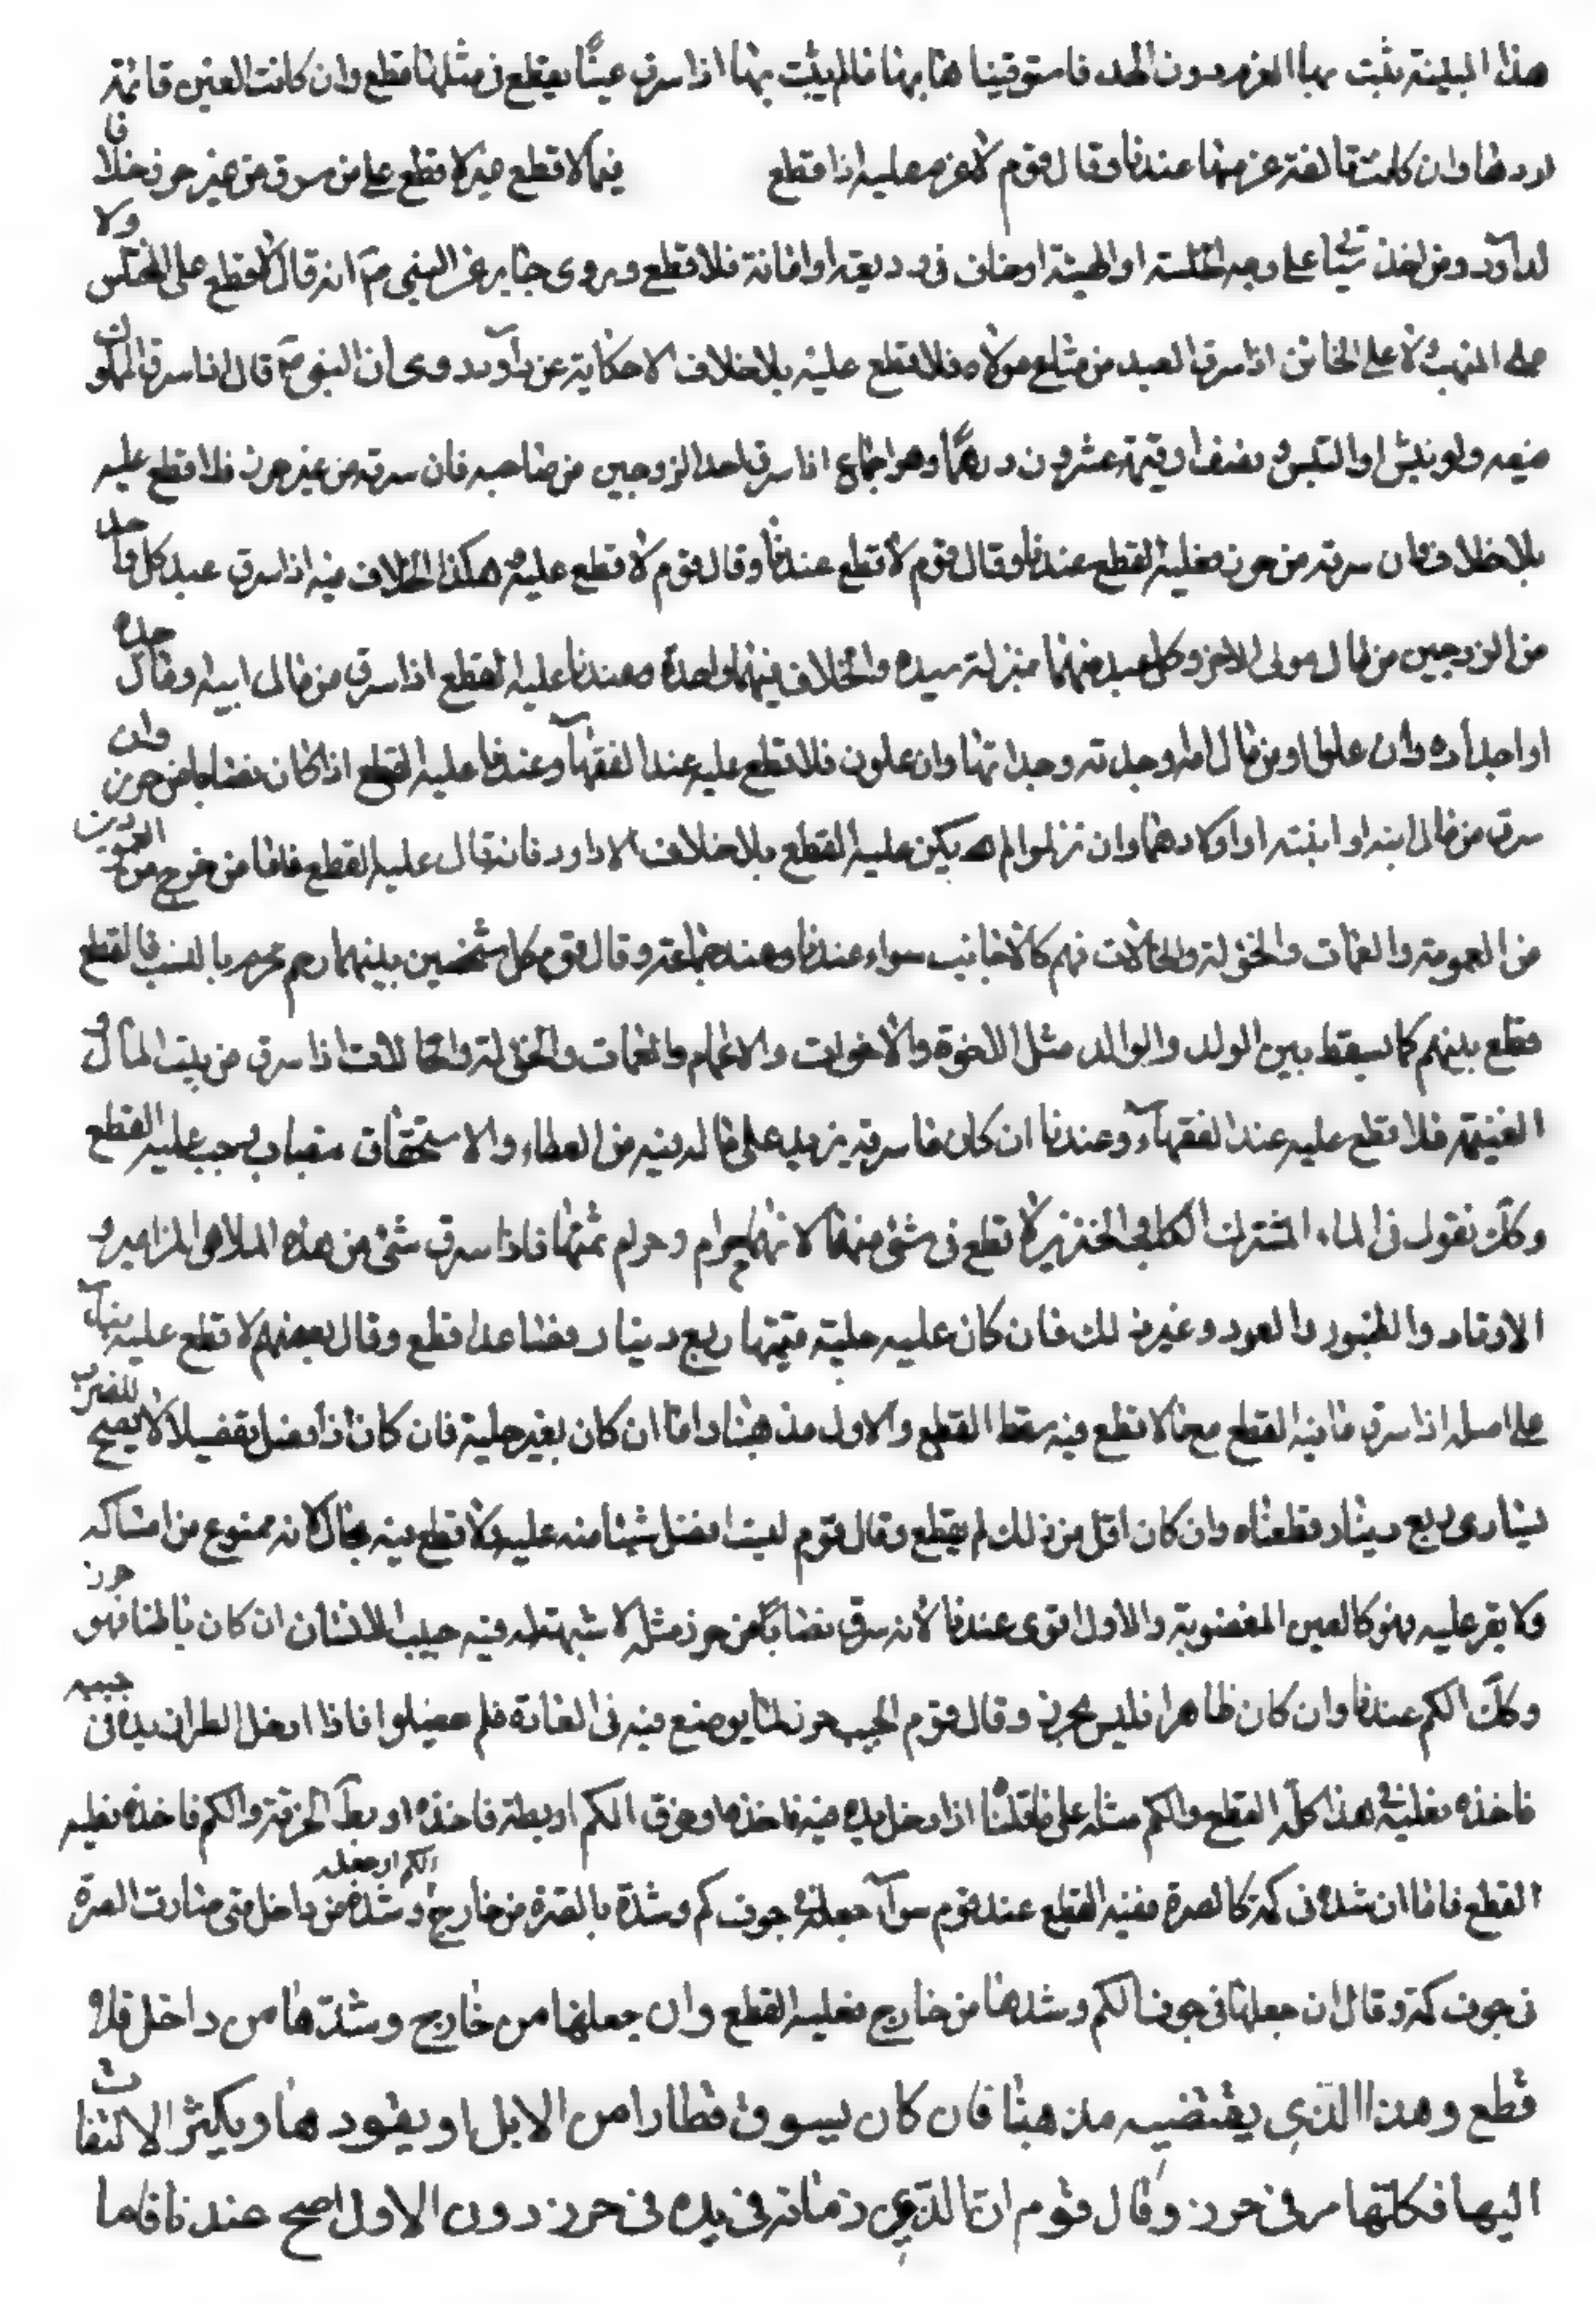 هذا البينة يثبت بها الغرم دون الحد فاستوفينا هنا بها ما لم يثبت بها اذا سرق عينًا يقطع في مثلها فقطع وان كانت العين قائمة
ردها وان كانت تالفة غرمها عندنا وقال قوم لا غرم عليه اذا قطع فيما لا قطع فيه لا قطع على من سرق من غير حرز خلافا
لداود ومن اخذ شيئا على وجه الخلسة او النهبة او خان في وديعة او امانة فلا قطع وروى جابر عن النبي ص انه قال لا قطع على المختلس ولا
على المنتهب لا على الخائن اذا سرق العبد من متاع مولاه فلا قطع عليه بلا خلاف الا حكاية عن داود وروى ان النبي ص قال اذا سرق المملوك
فبعه ولو بنش او النش نصف اوقية عشرون درهمًا وهو اجماع اذا سرق احد الزوجين من صاحبه فان سرقه من غير حرز فلا قطع عليه
بلا خلاف فان سرقه من حرز فعليه القطع عندنا وقال قوم لا قطع عندنا وقال قوم لا قطع عليه هكذا الخلاف فيه اذا سرق عبد كل واحد
من الزوجين من مال مولى الاخر وكل عبد منهما بمنزلة سيده والخلاف فيهما واحدة وعندنا عليه القطع اذا سرق من مال ابيه وقال جده
او اجداده وان علوا او من مال امه وجدته وجداتها وان علون فلا قطع عليه عند الفقهاء وعندنا عليه القطع اذا كان نصابا من حرز وان
سرق من مال ابنه او ابنته او اولادهما وان نزلوا لم يكن عليه القطع بلا خلاف الا داود فانه قال عليه القطع فاما من خرج من العمودين
من العمومة والعمات والخؤلة والخالات فهم كالاجانب سواء عندنا وعند جماعة وقال قوم كل شخصين بينهما رحم محرم بالنسب فالقطع
فقطع بينهم كما يسقط بين الولد والوالد مثل الاخوة والاخوات والاعمام والعمات والخؤلة والخالات اذا سرق من بيت المال
الغنيمة فلا قطع عليه عند الفقهاء وعندنا ان كان ما سرقه يزيد على ماله فيه من العطاء والاستحقاق بنصاب يجب عليه القطع
وكك نقول في الماء المشترك الكلب والخنزير لا قطع في شئ منها لانهما حرام وحرام ثمنها فاذا سرق شئ من هذه الملاهي المزامير و
الاوتار والطنبور والعود وغير ذلك فان كان عليه حلية قيمتها ربع دينار فصاعدا قطع وقال بعضهم لا قطع عليه بناء
على اصله اذا سرق ما فيه القطع مع ما لا قطع فيه سقط القطع والاول مذهبنا واما ان كان بغير حلية فان كان اذا فصل تفصيلا لا يصلح للضرب
يساوى ربع دينار قطعناه وان كان اقل من ذلك لم يقطع وقال قوم ليت افضل شيئا منه عليه لا قطع فيه بحال لانه ممنوع من امساكه
ولا يقر عليه فهو كالعين المغصوبة والاول اقوى عندنا لانه سرق نصابًا من حرز مثله لا شبهة له فيه جيب الانسان ان كان باطنا فهو حرز
وكك الكم عندنا وان كان ظاهرا فليس بحرز وقال قوم الجيب حرز لما يوضع فيه في العادة فلم يفصلوا فاذا ادخل الطرار يده في جيبه
فاخذه فعليه في هذا كله القطع والكم مثله على ما قلناه اذا دخل يده فيه فاخذه او خرق الكم او بطه فاخذه او بط الخرقة والكم فاخذه فعليه
القطع فاما ان شده في كمه كالصرة ففيه القطع عند قوم سواء جعله في جوف كم وشده بالصرة من خارج الكم او جعله وشده من داخل حتى صارت الصرة
في جوف كمه وقال ان جعلها في جوف الكم وشدها من خارج فعليه القطع وان جعلها من خارج وشدّها من داخل فلا
قطع وهذا الذي يقتضيه مذهبنا فان كان يسوق قطارا من الابل او يقودها ويكثر الالتفات
اليها فكلها مر في حرز وقال قوم ان الذي زمانه في يده في حرز دون الاول اصح عندنا فاما